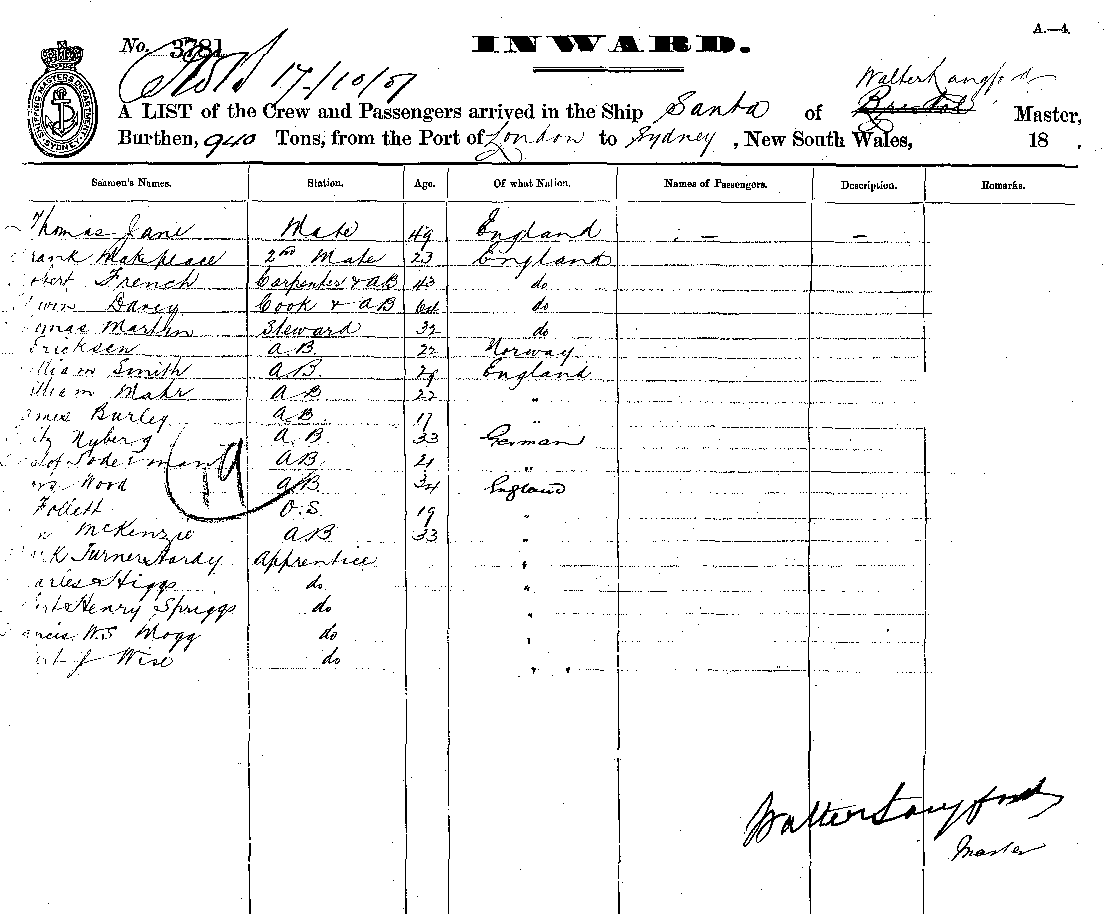 No. 3781 INWARD. A.—4.
17/10/81
Walter Langford
A LIST of the Crew and Passengers arrived in the Ship Santa of Bristol Master,
Burthen, 940 Tons, from the Port of London to Sydney, New South Wales, 18 .
SHIPPING MASTERS DEPARTMENT SYDNEY
Seamen's Names. Station. Age. Of what Nation. Names of Passengers. Description. Remarks.
Thomas Jane Mate 49 England — —
rank Makepeace 2nd Mate 23 England
obert French Carpenter & AB 43 do
win Davey Cook & AB do
omas Martin Steward 32 do
Ericksen AB 22 Norway
lliam Smith AB 29 England
illiam Mahr AB 22 "
ames Burley AB 17 "
tz Nyberg AB 33 German
lof Soderman AB 21 "
Wood AB 34 England
Follett O.S. 19 "
n McKenzie AB 33 "
k Turner Hardy Apprentice "
arles Higgs do "
Henry Spriggs do "
ancis WS Mogg do "
rt J Wise do " "
19
Walter Langford
Master